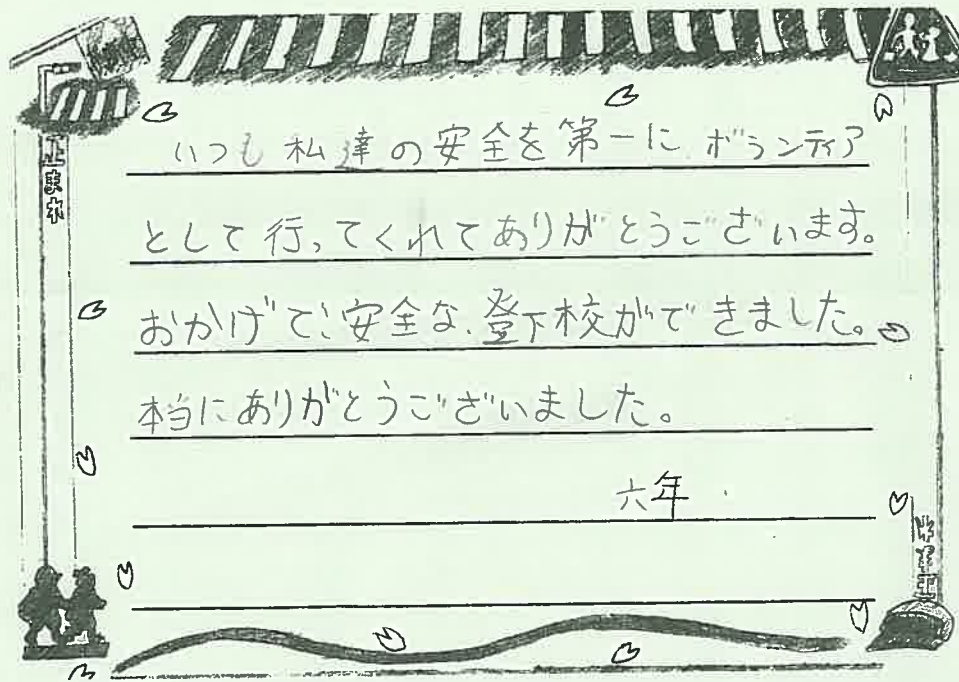 止まれ
いつも私達の安全を第一に、ボランティア
として行ってくれてありがとうございます。
おかげで、安全な、登下校ができました。
本当にありがとうございました。
六年